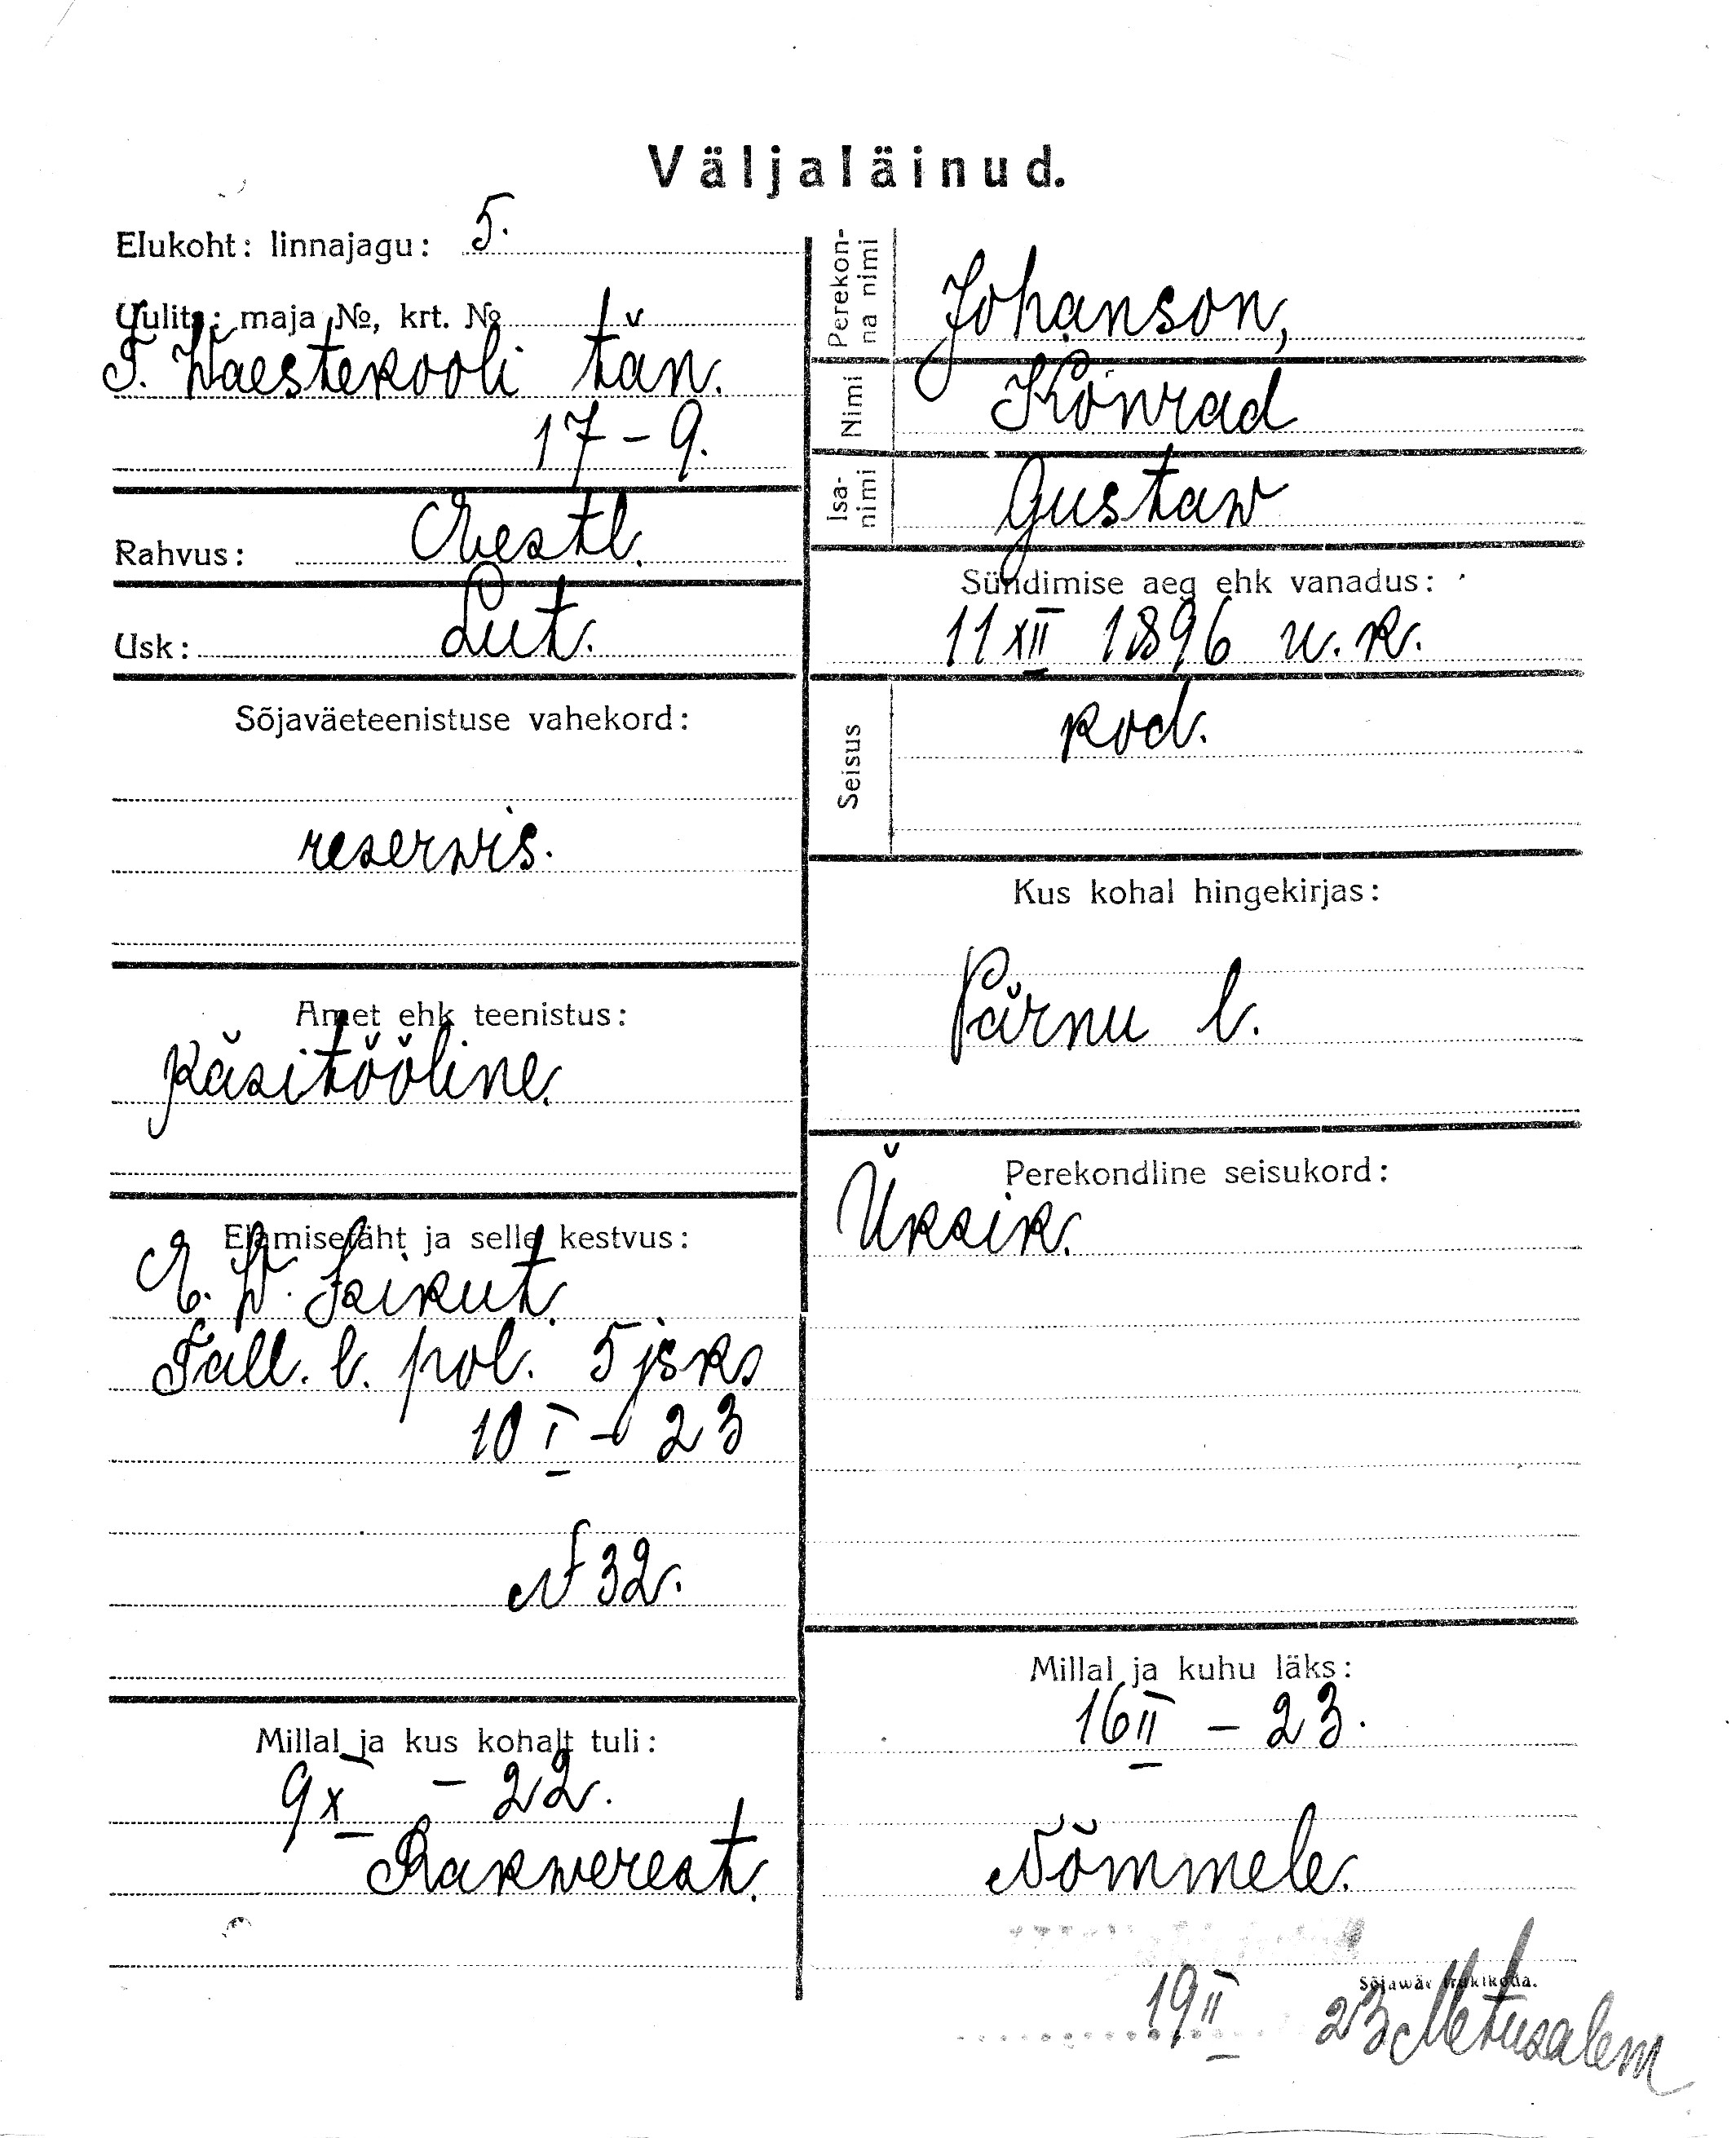 Väljaläinud.
Elukoht: linnajagu: 5.
Uulits: maja №, krt. №
T. Waestekooli tän.
17 - 9.
Rahvus: Eestl.
Usk: Lut.
Sõjaväeteenistuse vahekord:
reserwis.
Amet ehk teenistus:
Käsitööline.
Elamiseläht ja selle kestvus:
E. W. Isikut.
Tall. l. pol. 5 jsk.
10 I - 23
N 32.
Millal ja kus kohalt tuli:
9 X - 22.
Rakwerest.
Perekonna nimi
Johanson,
Nimi
Konrad
Isanimi
Gustaw
Sündimise aeg ehk vanadus:
11 XII 1896 u. k.
Seisus
kod.
Kus kohal hingekirjas:
Pärnu l.
Perekondline seisukord:
Üksik.
Millal ja kuhu läks:
16 II - 23.
Nõmmele.
Sõjawäe trükikoda.
19 II 23 Metusalem